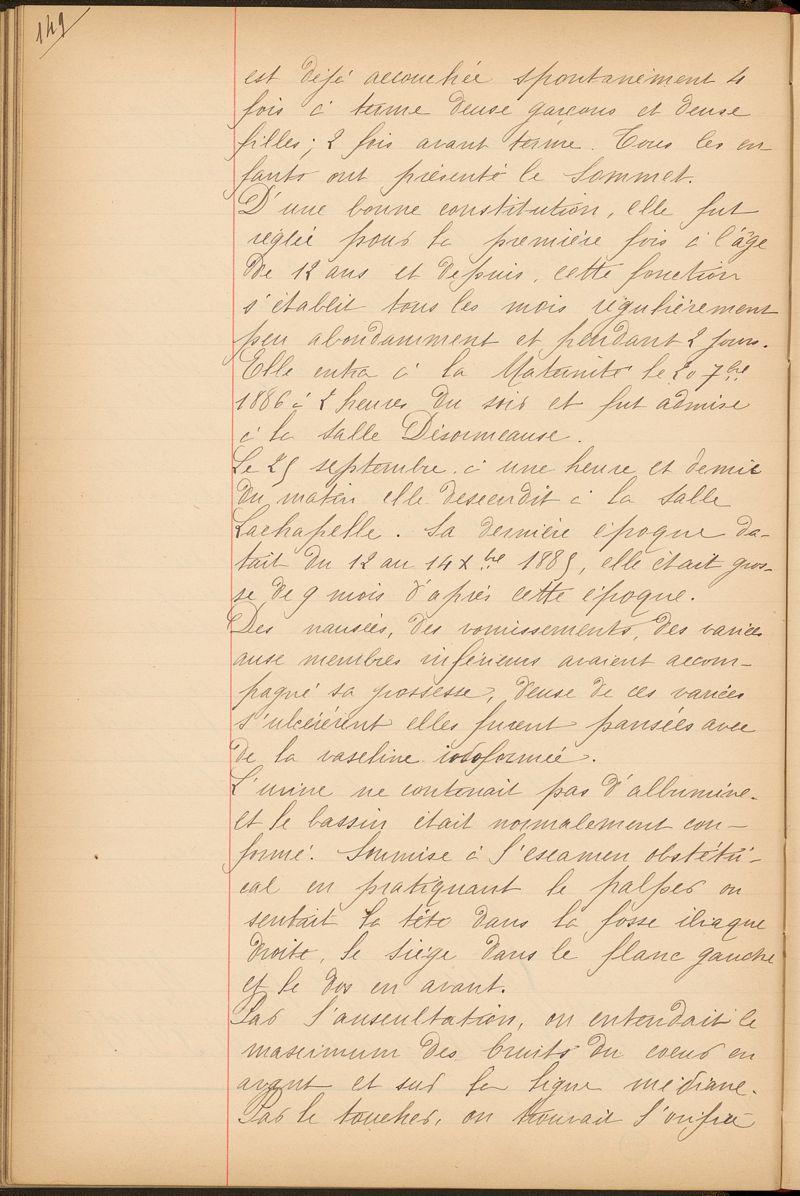 149
est déjà accouchée spontanément 4
fois à terme deuse garçons et deuse
filles; 2 fois avant terme. Tous les en
fants ont présenté le sommet.
D'une bonne constitution, elle fut
réglée pour la première fois à l'âge
de 12 ans et depuis, cette fonction
s'établit tous les mois régulièrement
peu abondamment et pendant 2 jours.
Elle entra à la Maternité le 20 7bre
1886 à 2 heures du soir et fut admise
à la salle Désormeause.
Le 25 septembre à une heure et demie
du matin elle descendit à la salle
Lachapelle. Sa dernière époque da-
tait du 12 au 14 Xbre 1885, elle était gros-
se de 9 mois d'après cette époque.
Des nausées, des vomissements, des varices
ause membres inférieurs avaient accom-
pagné sa grossesse, deuse de ces varices
s'ulcérèrent elles furent pansées avec
de la vaseline iodoformée.
L'urine ne contenait pas d'allbumine.
et le bassin était normalement con-
formé. Soumise à l'esamen obstétri-
cal en pratiquant le palper on
sentait la tête dans la fosse iliaque
droite, le siège dans le flanc gauche
et le dos en avant.
Par l'auscultation, on entendait le
masimum des bruits du coeur en
avant et sur la ligne médiane.
Par le toucher, on trouvait l'orifice